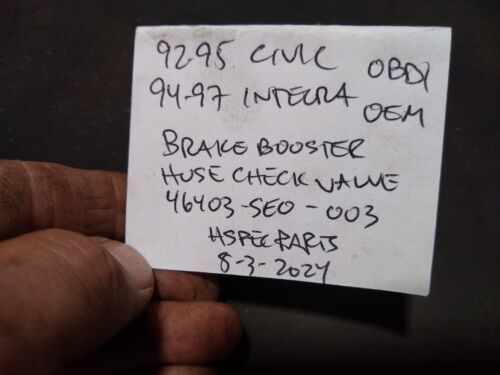 92-95 CIVIC OBD1
94-97 INTEGRA OEM
BRAKE BOOSTER
HOSE CHECK VALVE
46403-SE0-003
HSPEC PARTS
8-3-2024